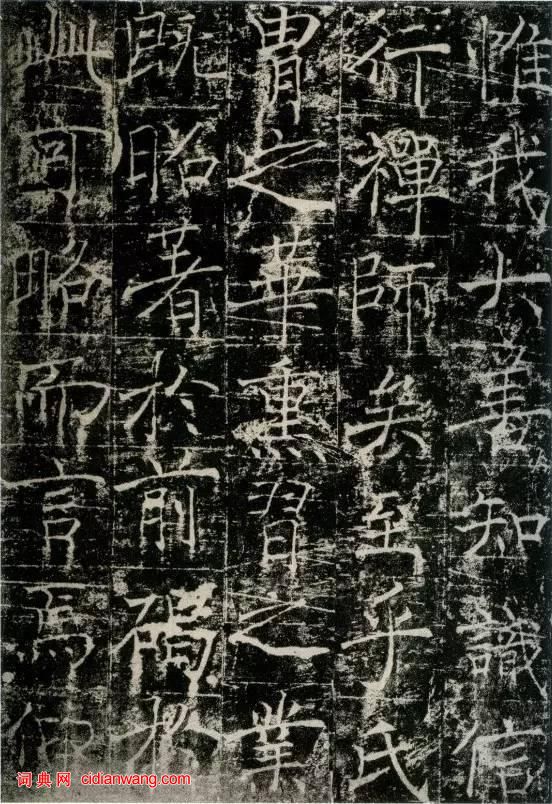 惟我大善知識信
行禪師矣至乎氏
胄之華熏習之業
既昭著於前碣於
此可略而言焉
词典网 cidianwang.com